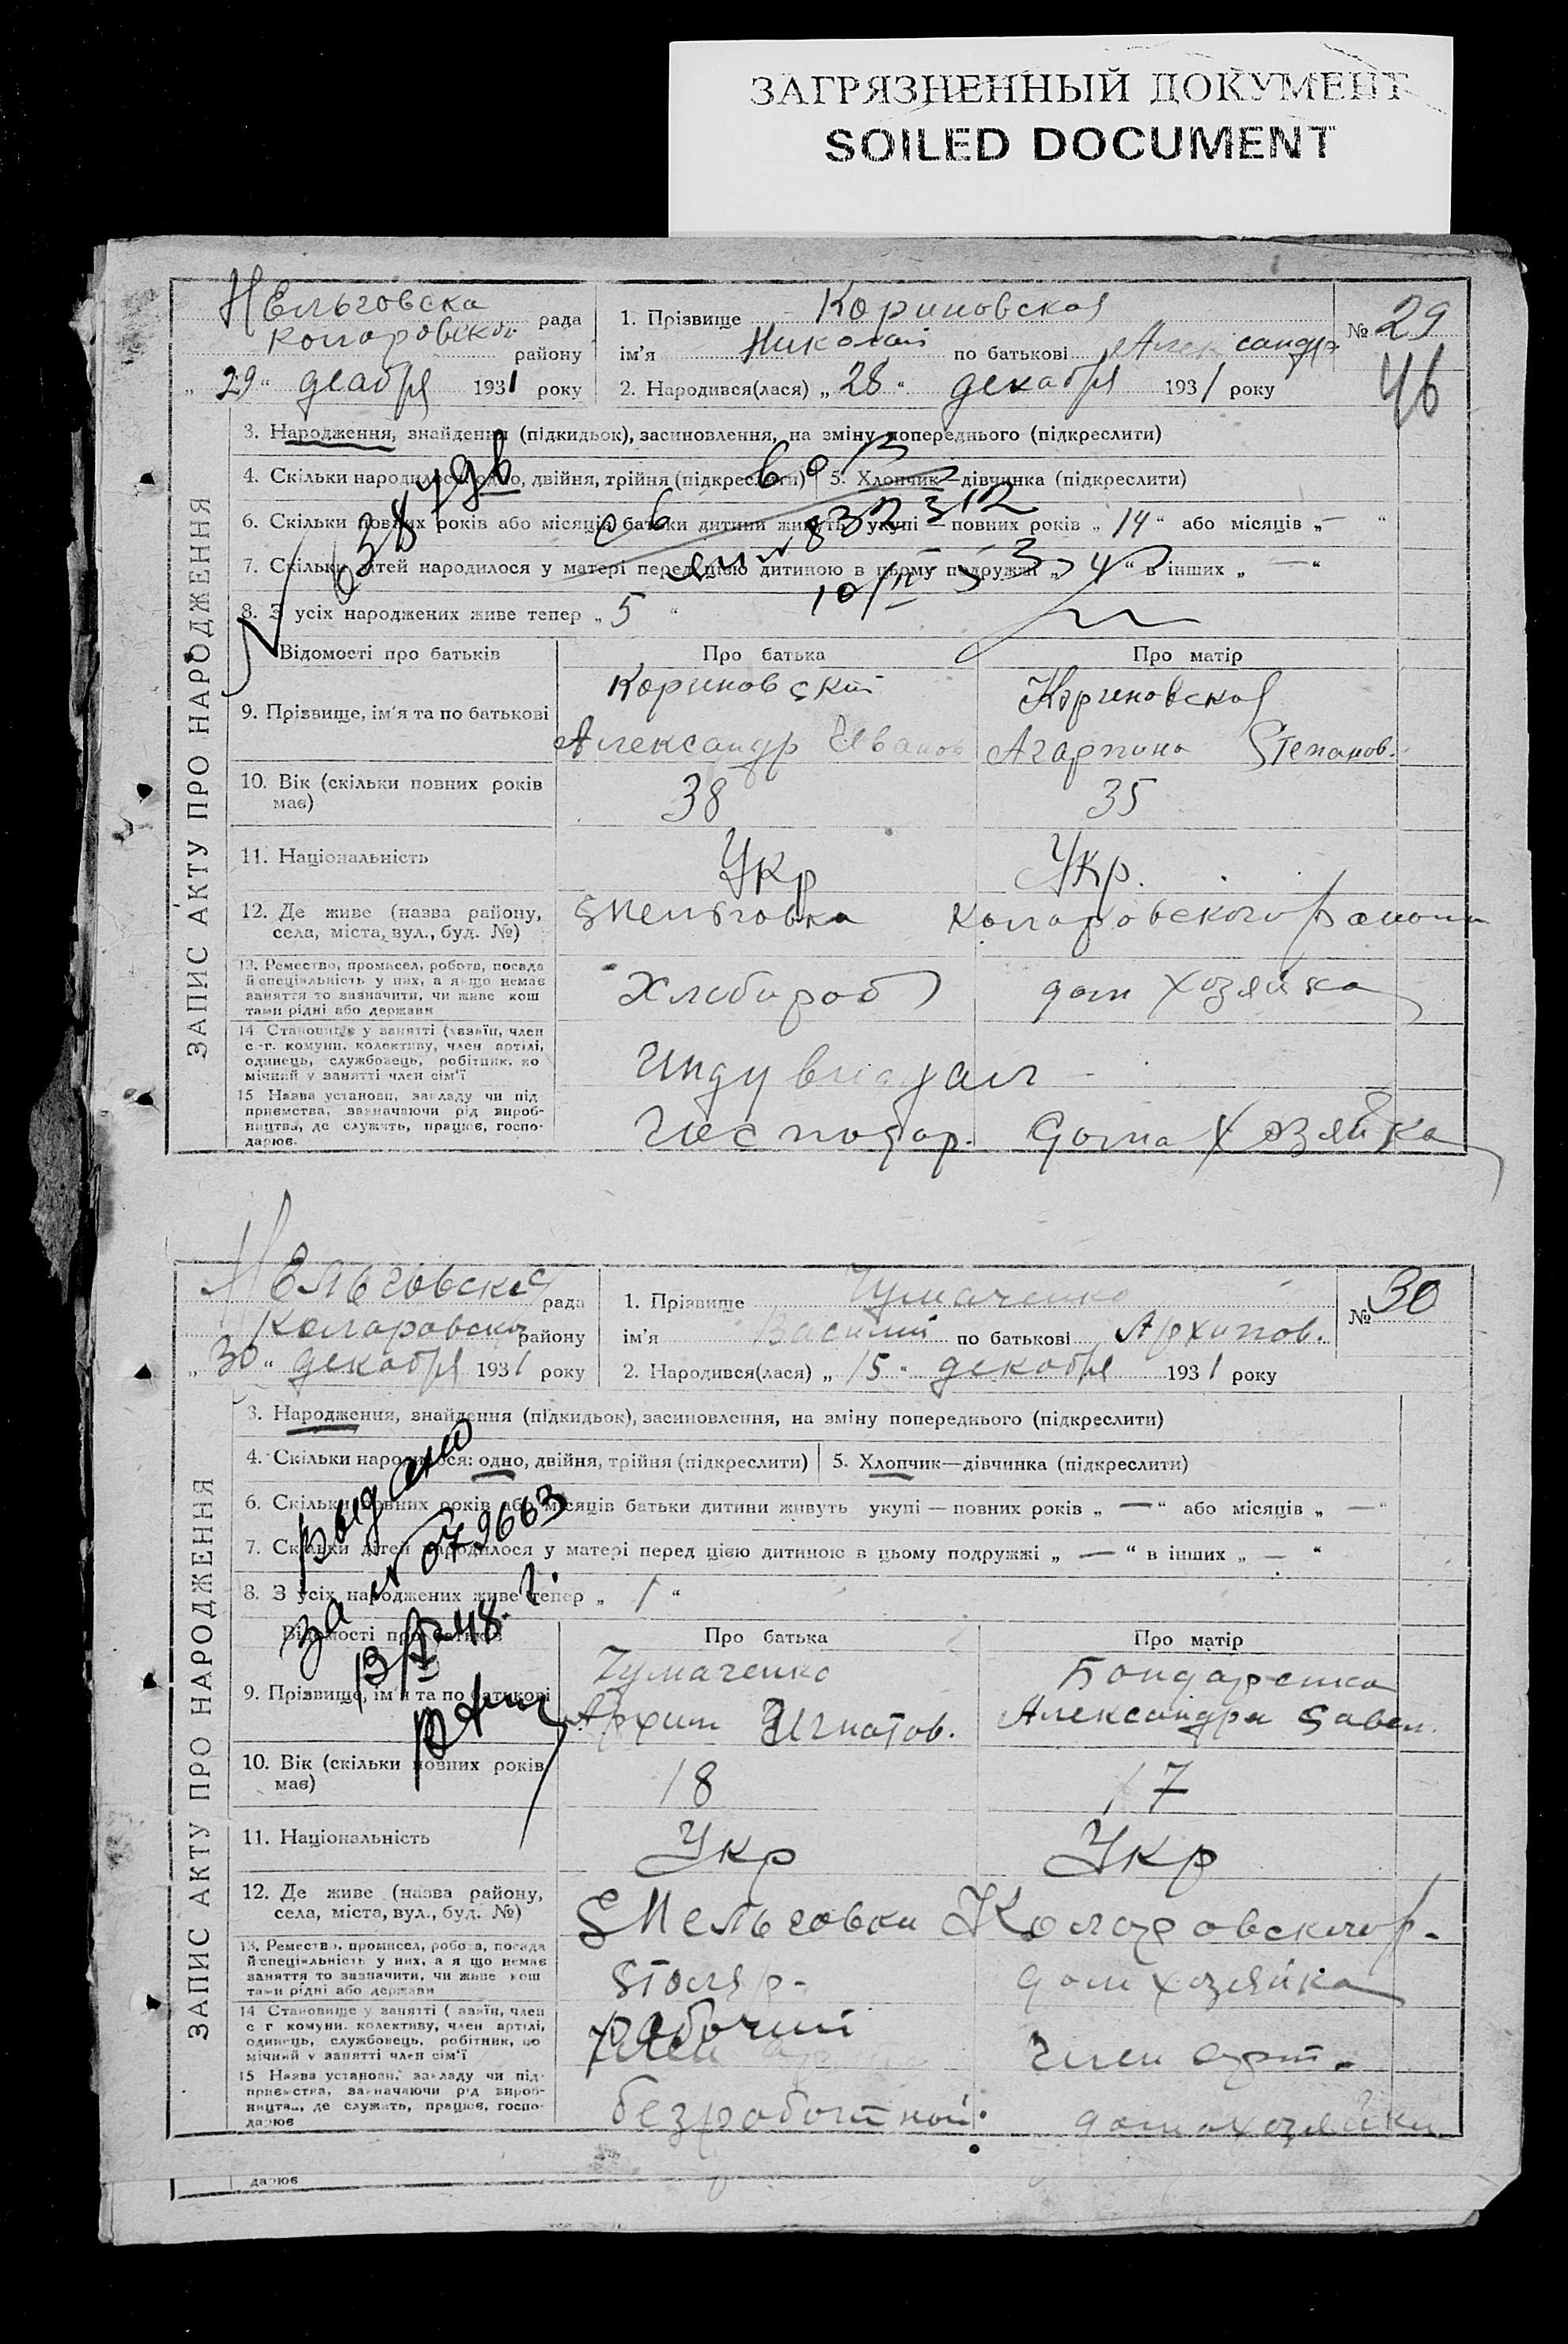 ЗАГРЯЗНЕННЫЙ ДОКУМЕНТ
SOILED DOCUMENT
ЗАПИС АКТУ ПРО НАРОДЖЕННЯ
Мельговска рада
району
„29“ 1931 року
1. Прізвище Кориновская
ім'я Николай по батькові Александр
2. Народився(лася) „28“ декабря 1931 року
№ 29
46
3. Народження, знайдення (підкидьок), засиновлення, на зміну попереднього (підкреслити)
4. Скільки народилося: одно, двійня, трійня (підкреслити)
5. Хлопчик—дівчинка (підкреслити)
6. Скільки повних років або місяців батьки дитини живуть укупі — повних років „14“ або місяців „—“
7. Скільки дітей народилося у матері перед цією дитиною в цьому подружжі „4“ в інших „—“
8. З усіх народжених живе тепер „5“
Відомості про батьків
Про батька
Про матір
9. Прізвище, ім'я та по батькові
Кориновский
Александр Иванов
Кориновская
Агарпина Степанов.
10. Вік (скільки повних років має)
38
35
11. Національність
Укр
Укр.
12. Де живе (назва району, села, міста, вул., буд. №)
с Мельговка Коларовского района
13. Ремество, промисел, робота, посада й спеціяльність у них, а якщо немає заняття то зазначити, чи живе коштами рідні або держави
Хлебороб
дом хозяйка
14 Становище у занятті (хазяїн, член с.-г. комуни, колективу, член артілі, одинець, службовець, робітник, помічний у занятті член сім'ї
15 Назва установи, закладу чи підприємства, зазначаючи рід виробництва, де служить, працює, господарює.
дома хозяйка
ЗАПИС АКТУ ПРО НАРОДЖЕННЯ
Мельговска рада
району
„30“ декабря 1931 року
1. Прізвище Чумаченко
ім'я Василий по батькові Архипов.
2. Народився(лася) „15“ декабря 1931 року
№ 30
3. Народження, знайдення (підкидьок), засиновлення, на зміну попереднього (підкреслити)
4. Скільки народилося: одно, двійня, трійня (підкреслити)
5. Хлопчик—дівчинка (підкреслити)
6. Скільки повних років або місяців батьки дитини живуть укупі — повних років „—“ або місяців „—“
7. Скільки дітей народилося у матері перед цією дитиною в цьому подружжі „—“ в інших „—“
8. З усіх народжених живе тепер „1“
Выдано
за № 079663
Відомості про батьків
Про батька
Про матір
9. Прізвище, ім'я та по батькові
Чумаченко
Архип Игнатов.
Бондаренка
Александра Савел.
10. Вік (скільки повних років має)
18
17
11. Національність
Укр
Укр
12. Де живе (назва району, села, міста, вул., буд. №)
с Мельговки Коларовского р.
13. Ремество, промисел, робота, посада й спеціяльність у них, а якщо немає заняття то зазначити, чи живе коштами рідні або держави
Столяр.
дом хозяйка
14 Становище у занятті (хазяїн, член с.-г. комуни, колективу, член артілі, одинець, службовець, робітник, помічний у занятті член сім'ї
рабочий
член арт.
15 Назва установи, закладу чи підприємства, зазначаючи рід виробництва, де служить, працює, господарює
домохозяйки
дарює